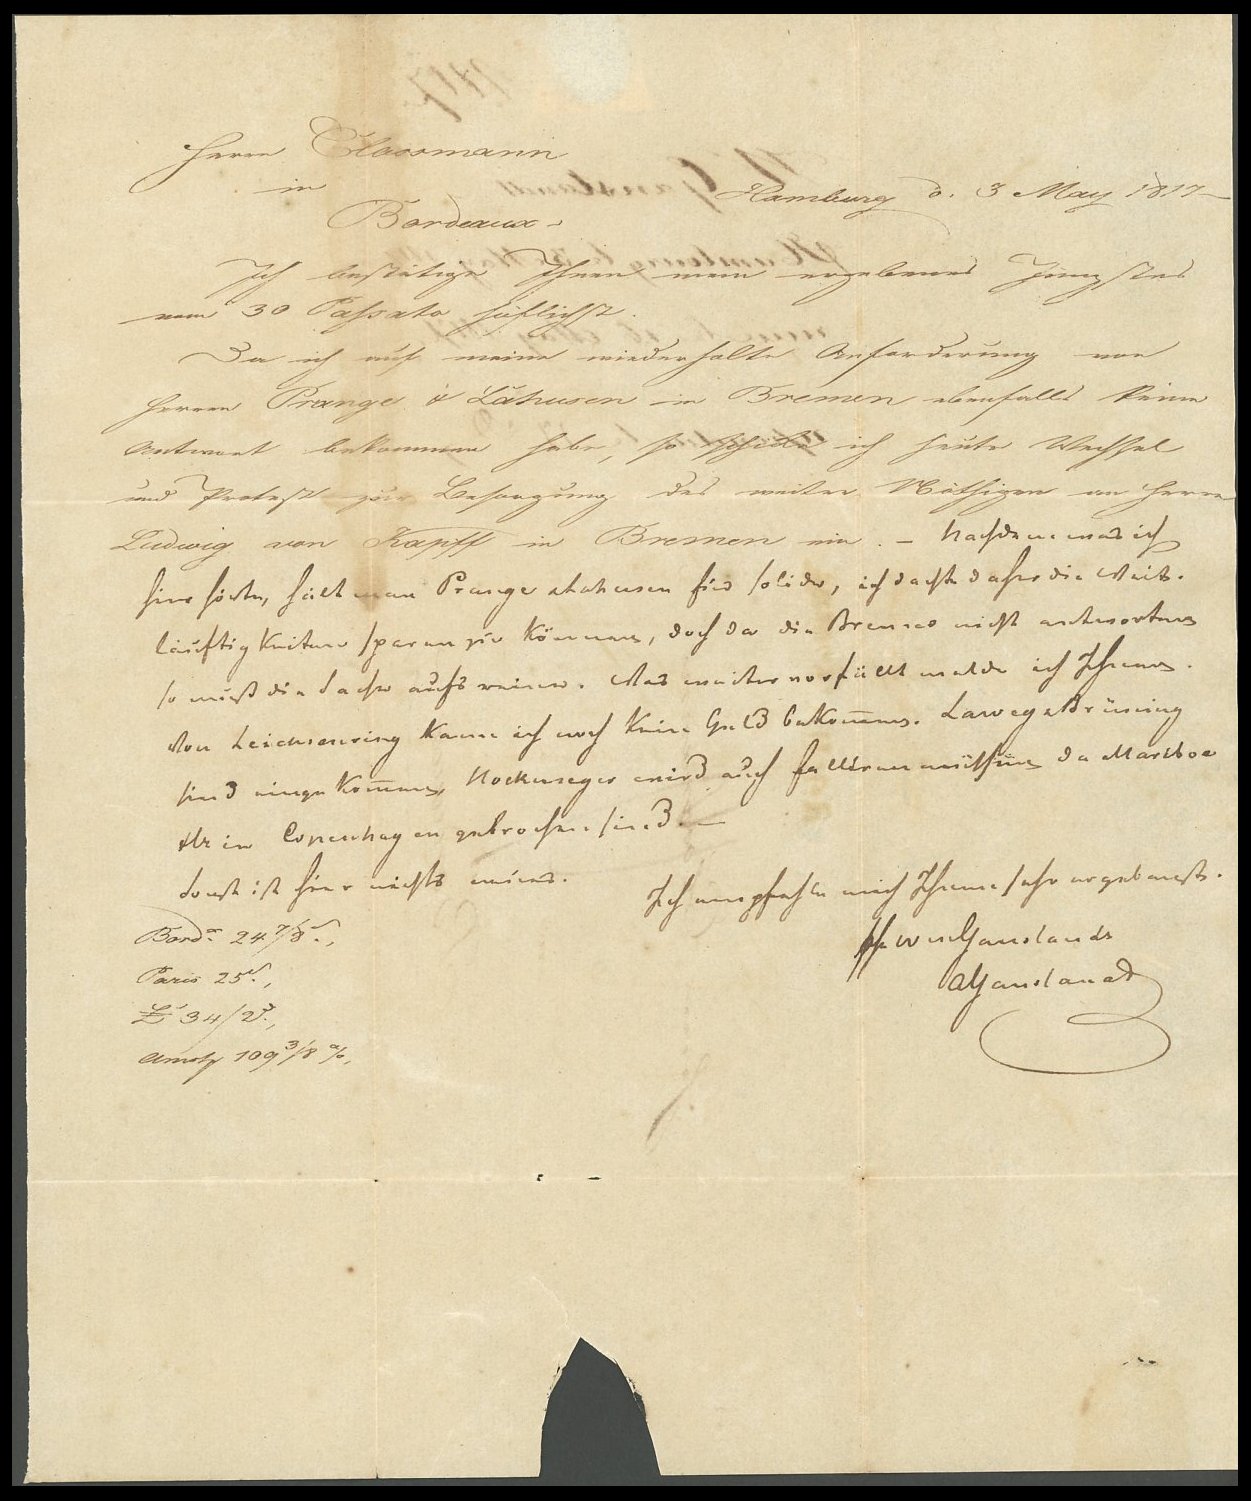 Herrn Classmann
in
Bordeaux.
Hamburg d. 3 May 1817
Ich bestätige Ihnen mein ergebenes Jüngstes
vom 30 Passato höflichst.
Da ich auf meine wiederholte Anforderung von
Herren Prange & Lahusen in Bremen ebenfalls keine
Antwort bekommen habe, so schicke ich heute Wechsel
und Protest zur Besorgung des weiter Nöthigen an Herrn
Ludwig von Kapff in Bremen ein. – Nachdem was ich
hier hörte, hält man Prange & Lahusen für solide, ich dachte daher die Weit-
läuftigkeiten sparen zu können, doch da die Bremer nicht antworten
so muß die Sache aufs reine. Was weiter vorfällt melde ich Ihnen.
Von Leichsenring kann ich noch kein Geld bekommen. Brüning
sind eingekommen, wird auch müssen da
in Copenhagen gebrochen sind. —
Sonst ist hier nichts neues.
Ich empfehle mich Ihnen sehr ergebenst.
Ganslandt
Ganslandt
Bordx 24 7/8
Paris 25
£ 34/2
Amstg 109 3/8 %